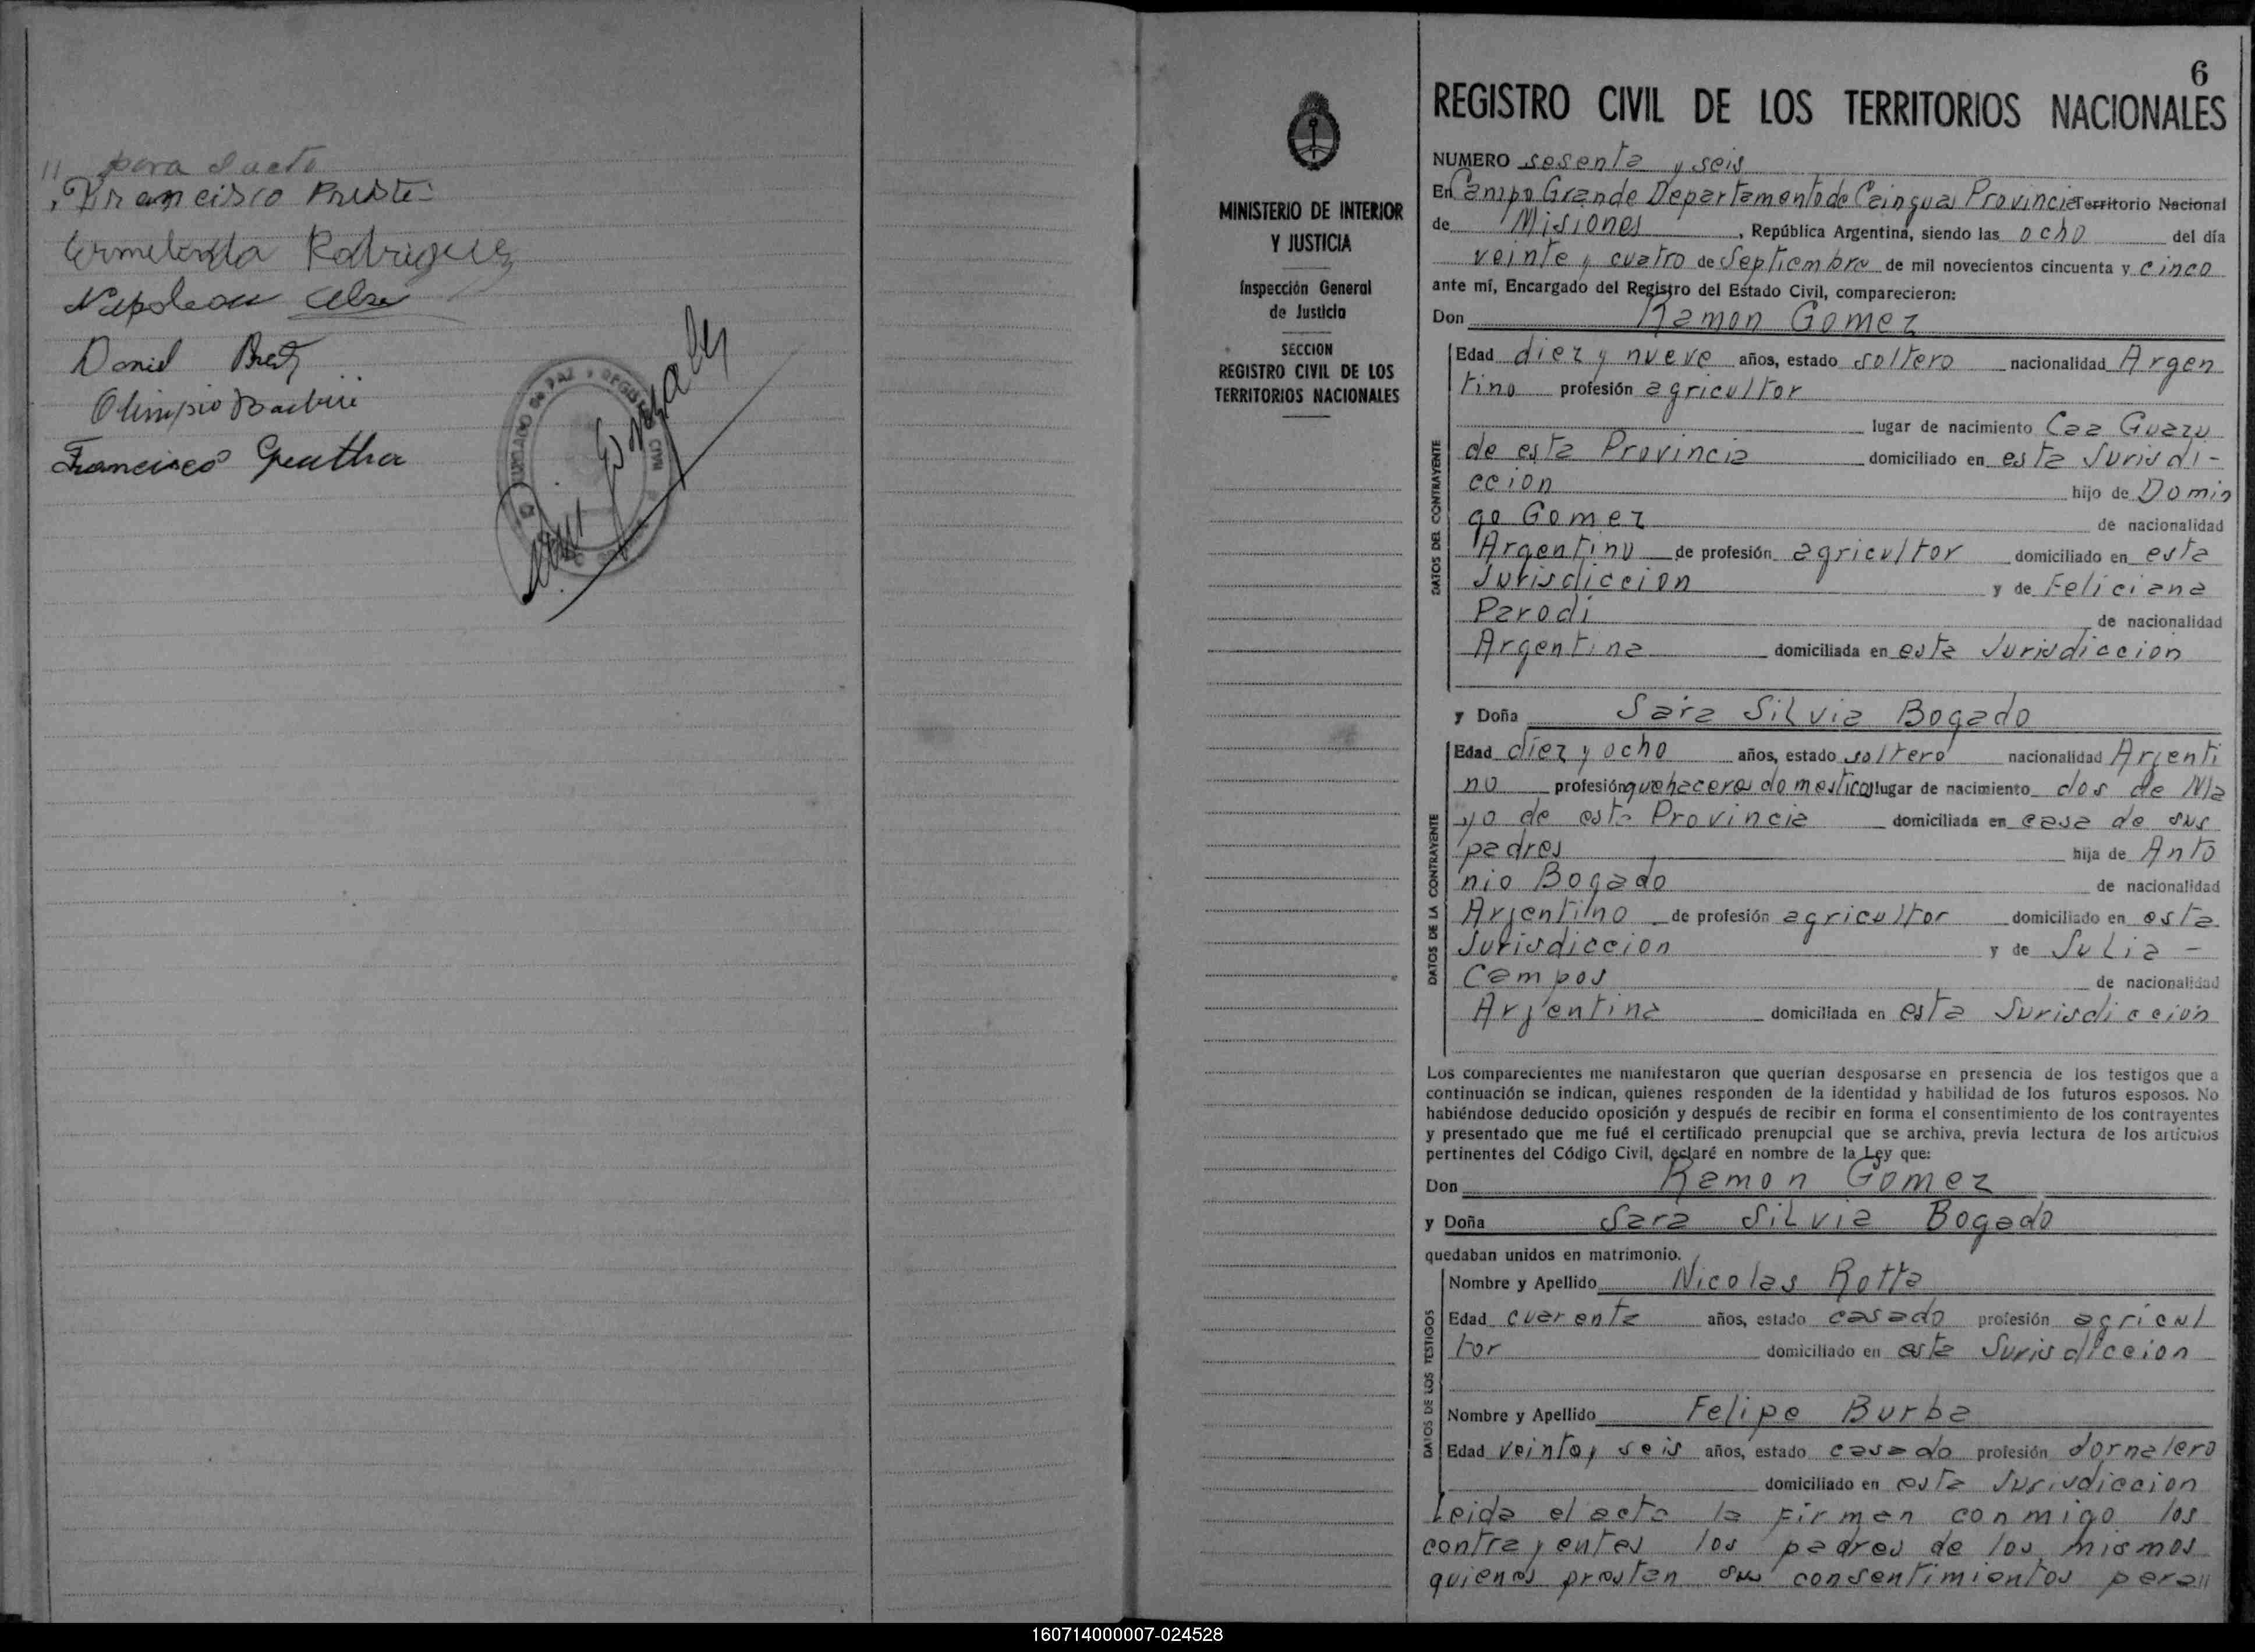 // para el acto
Francisco
Ermelinda Rodriguez
Napoleon
Daniel
Olimpio Barbiri
Francisco
Gonzalez
JUZGADO DE PAZ Y REGISTRO CIVIL
MINISTERIO DE INTERIOR
Y JUSTICIA
Inspección General
de Justicia
SECCION
REGISTRO CIVIL DE LOS
TERRITORIOS NACIONALES
6
REGISTRO CIVIL DE LOS TERRITORIOS NACIONALES
NUMERO sesenta y seis
En Campo Grande Departamento de Cainguas Provincia Territorio Nacional
de Misiones, República Argentina, siendo las ocho del día
veinte y cuatro de Septiembre de mil novecientos cincuenta y cinco
ante mí, Encargado del Registro del Estado Civil, comparecieron:
Don Ramon Gomez
DATOS DEL CONTRAYENTE
Edad diez y nueve años, estado soltero nacionalidad Argen
tino profesión agricultor
lugar de nacimiento Caa Guazu
de esta Provincia domiciliado en esta Jurisdi-
ccion hijo de Domin
go Gomez de nacionalidad
Argentino de profesión agricultor domiciliado en esta
Jurisdiccion y de Feliciana
Parodi de nacionalidad
Argentina domiciliada en esta Jurisdiccion
y Doña Sara Silvia Bogado
DATOS DE LA CONTRAYENTE
Edad diez y ocho años, estado soltero nacionalidad Argenti
no profesión quehaceres domesticos lugar de nacimiento dos de Ma
yo de esta Provincia domiciliada en casa de sus
padres hija de Anto
nio Bogado de nacionalidad
Argentino de profesión agricultor domiciliado en esta
Jurisdiccion y de Julia -
Campos de nacionalidad
Argentina domiciliada en esta Jurisdiccion
Los comparecientes me manifestaron que querían desposarse en presencia de los testigos que a
continuación se indican, quienes responden de la identidad y habilidad de los futuros esposos. No
habiéndose deducido oposición y después de recibir en forma el consentimiento de los contrayentes
y presentado que me fué el certificado prenupcial que se archiva, previa lectura de los artículos
pertinentes del Código Civil, declaré en nombre de la Ley que:
Don Ramon Gomez
y Doña Sara Silvia Bogado
quedaban unidos en matrimonio.
DATOS DE LOS TESTIGOS
Nombre y Apellido Nicolas Rotta
Edad cuarenta años, estado casado profesión agricul
tor domiciliado en esta Jurisdiccion
Nombre y Apellido Felipe Burba
Edad veinte y seis años, estado casado profesión Jornalero
domiciliado en esta Jurisdiccion
Leida el acta la firman conmigo los
contrayentes los padres de los mismos
quienes prestan sus consentimientos para //
160714000007-024528